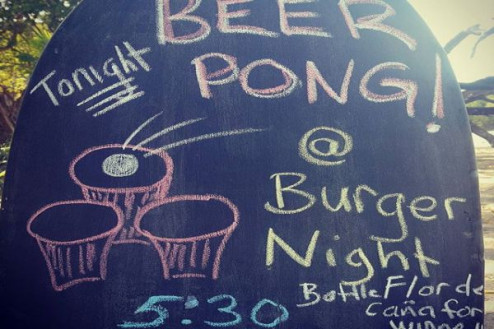 BEER
Tonight
PONG!
@
Burger
Night
Bottle Flor de
caña for
5:30